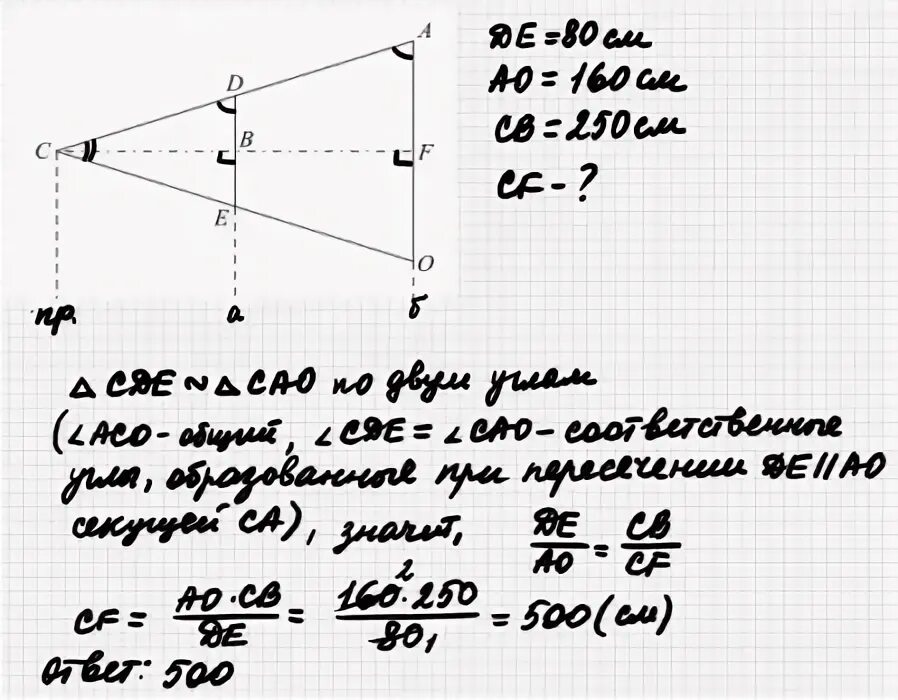 DE = 80 см
AO = 160 см
CB = 250 см
CF - ?
A
D
C
B
F
E
O
пр.
а
б
△ CDE ~ △ CAO по двум углам
(∠ACO - общий, ∠CDE = ∠CAO - соответственные
углы, образованные при пересечении DE || AO
секущей CA), значит, DE/AO = CB/CF
CF = AO · CB / DE = 160² · 250 / 80₁ = 500 (см)
Ответ: 500